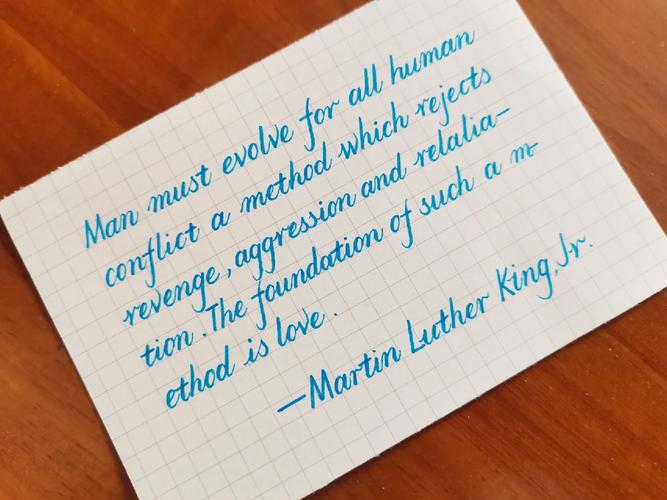 Man must evolve for all human
conflict a method which rejects
revenge, aggression and relalia-
tion. The foundation of such a m-
ethod is love.
—Martin Luther King, Jr.